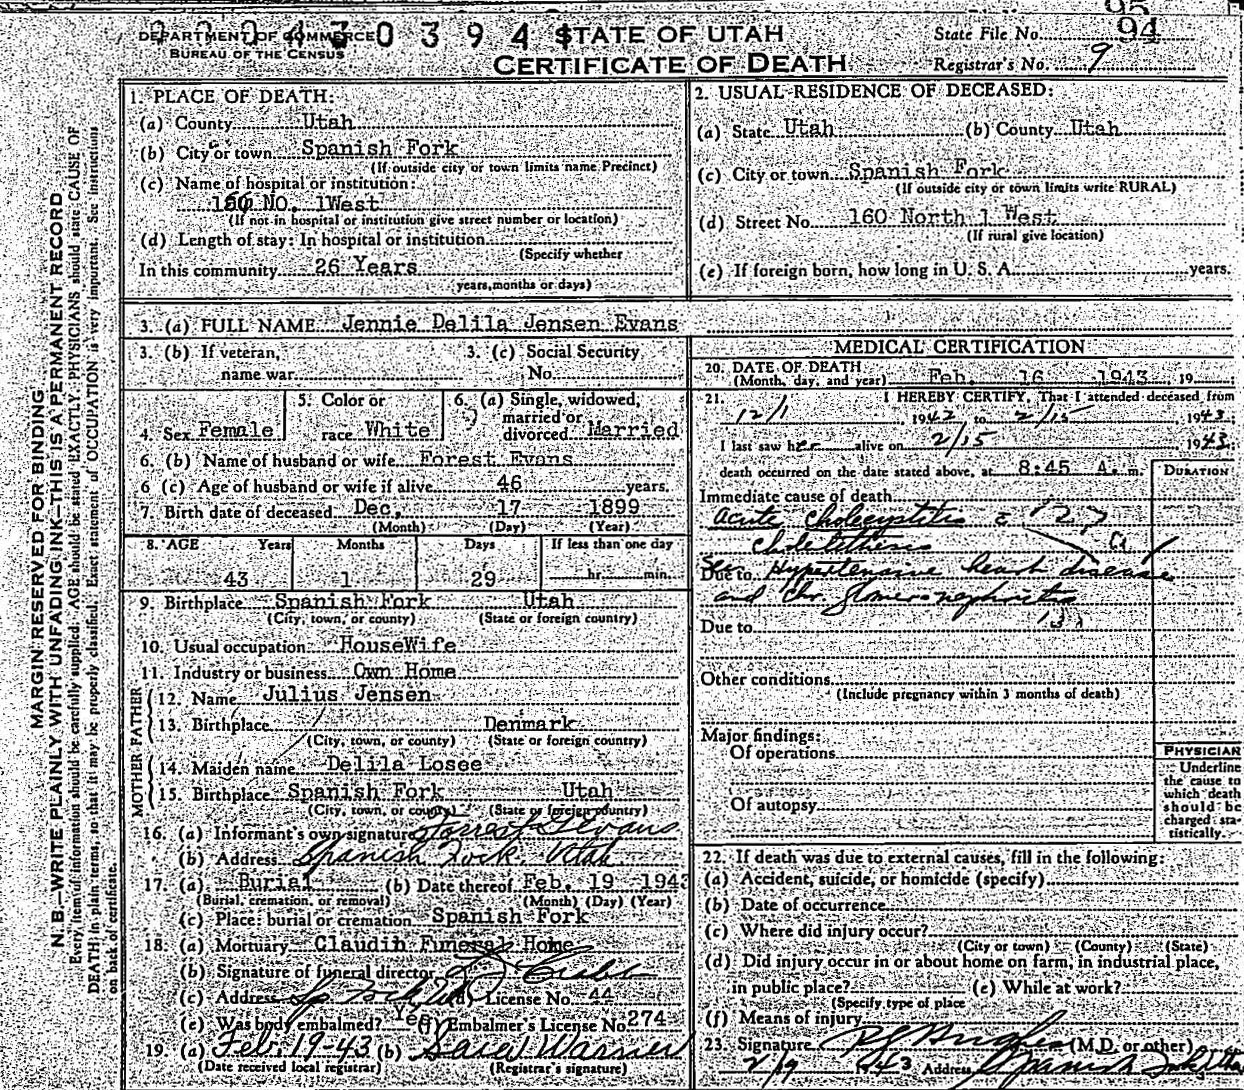 DEPARTMENT OF COMMERCE
BUREAU OF THE CENSUS
0 3 9 4
STATE OF UTAH
CERTIFICATE OF DEATH
95
State File No. 94
Registrar's No. 9
MARGIN RESERVED FOR BINDING
N. B.—WRITE PLAINLY WITH UNFADING INK—THIS IS A PERMANENT RECORD
Every item of information should be carefully supplied. AGE should be stated EXACTLY. PHYSICIANS should state CAUSE OF
DEATH in plain terms, so that it may be properly classified. Exact statement of OCCUPATION is very important. See instructions
on back of certificate.
1. PLACE OF DEATH:
(a) County Utah
(b) City or town Spanish Fork
(If outside city or town limits name Precinct)
(c) Name of hospital or institution:
160 NO. 1West
(If not in hospital or institution give street number or location)
(d) Length of stay: In hospital or institution
(Specify whether
In this community 26 Years
years, months or days)
2. USUAL RESIDENCE OF DECEASED:
(a) State Utah (b) County Utah
(c) City or town Spanish Fork
(If outside city or town limits write RURAL)
(d) Street No. 160 North 1 West
(If rural give location)
(e) If foreign born, how long in U. S. A. years.
3. (a) FULL NAME Jennie Delila Jensen Evans
3. (b) If veteran,
name war
3. (c) Social Security
No.
4. Sex Female
5. Color or
race White
6. (a) Single, widowed,
married or
divorced Married
6. (b) Name of husband or wife Forest Evans
6 (c) Age of husband or wife if alive 46 years.
7. Birth date of deceased Dec. 17 1899
(Month) (Day) (Year)
8. AGE Years Months Days If less than one day
43 1 29 hr. min.
9. Birthplace Spanish Fork Utah
(City, town, or county) (State or foreign country)
10. Usual occupation HouseWife
11. Industry or business Own Home
FATHER
12. Name Julius Jensen
13. Birthplace Denmark
(City, town, or county) (State or foreign country)
MOTHER
14. Maiden name Delila Losee
15. Birthplace Spanish Fork Utah
(City, town, or county) (State or foreign country)
16. (a) Informant's own signature Forrest Evans
(b) Address Spanish Fork. Utah
17. (a) Burial (b) Date thereof Feb. 19 1943
(Burial, cremation, or removal) (Month) (Day) (Year)
(c) Place: burial or cremation Spanish Fork
18. (a) Mortuary Claudin Funeral Home
(b) Signature of funeral director
(c) Address License No. 44
(e) Was body embalmed? Yes (f) Embalmer's License No. 274
19. (a) Feb. 19-43 (b) Warner
(Date received local registrar) (Registrar's signature)
MEDICAL CERTIFICATION
20. DATE OF DEATH
(Month, day, and year) Feb. 16 1943, 19
21. I HEREBY CERTIFY, That I attended deceased from
12/1, 1942 to 2/15 1943.
I last saw her alive on 2/15 1943.
death occurred on the date stated above, at 8:45 A. m.
DURATION
Immediate cause of death
Acute cholecystitis c 127
a
Due to Hypertensive heart disease
and Chr. glomeronephritis
Due to
Other conditions
(Include pregnancy within 3 months of death)
Major findings:
Of operations
Of autopsy
PHYSICIAN
Underline
the cause to
which death
should be
charged sta-
tistically.
22. If death was due to external causes, fill in the following:
(a) Accident, suicide, or homicide (specify)
(b) Date of occurrence
(c) Where did injury occur?
(City or town) (County) (State)
(d) Did injury occur in or about home on farm, in industrial place,
in public place? (e) While at work?
(Specify type of place
(f) Means of injury
23. Signature Hughes (M.D. or other)
2/19 1943 Address Spanish Fork Utah